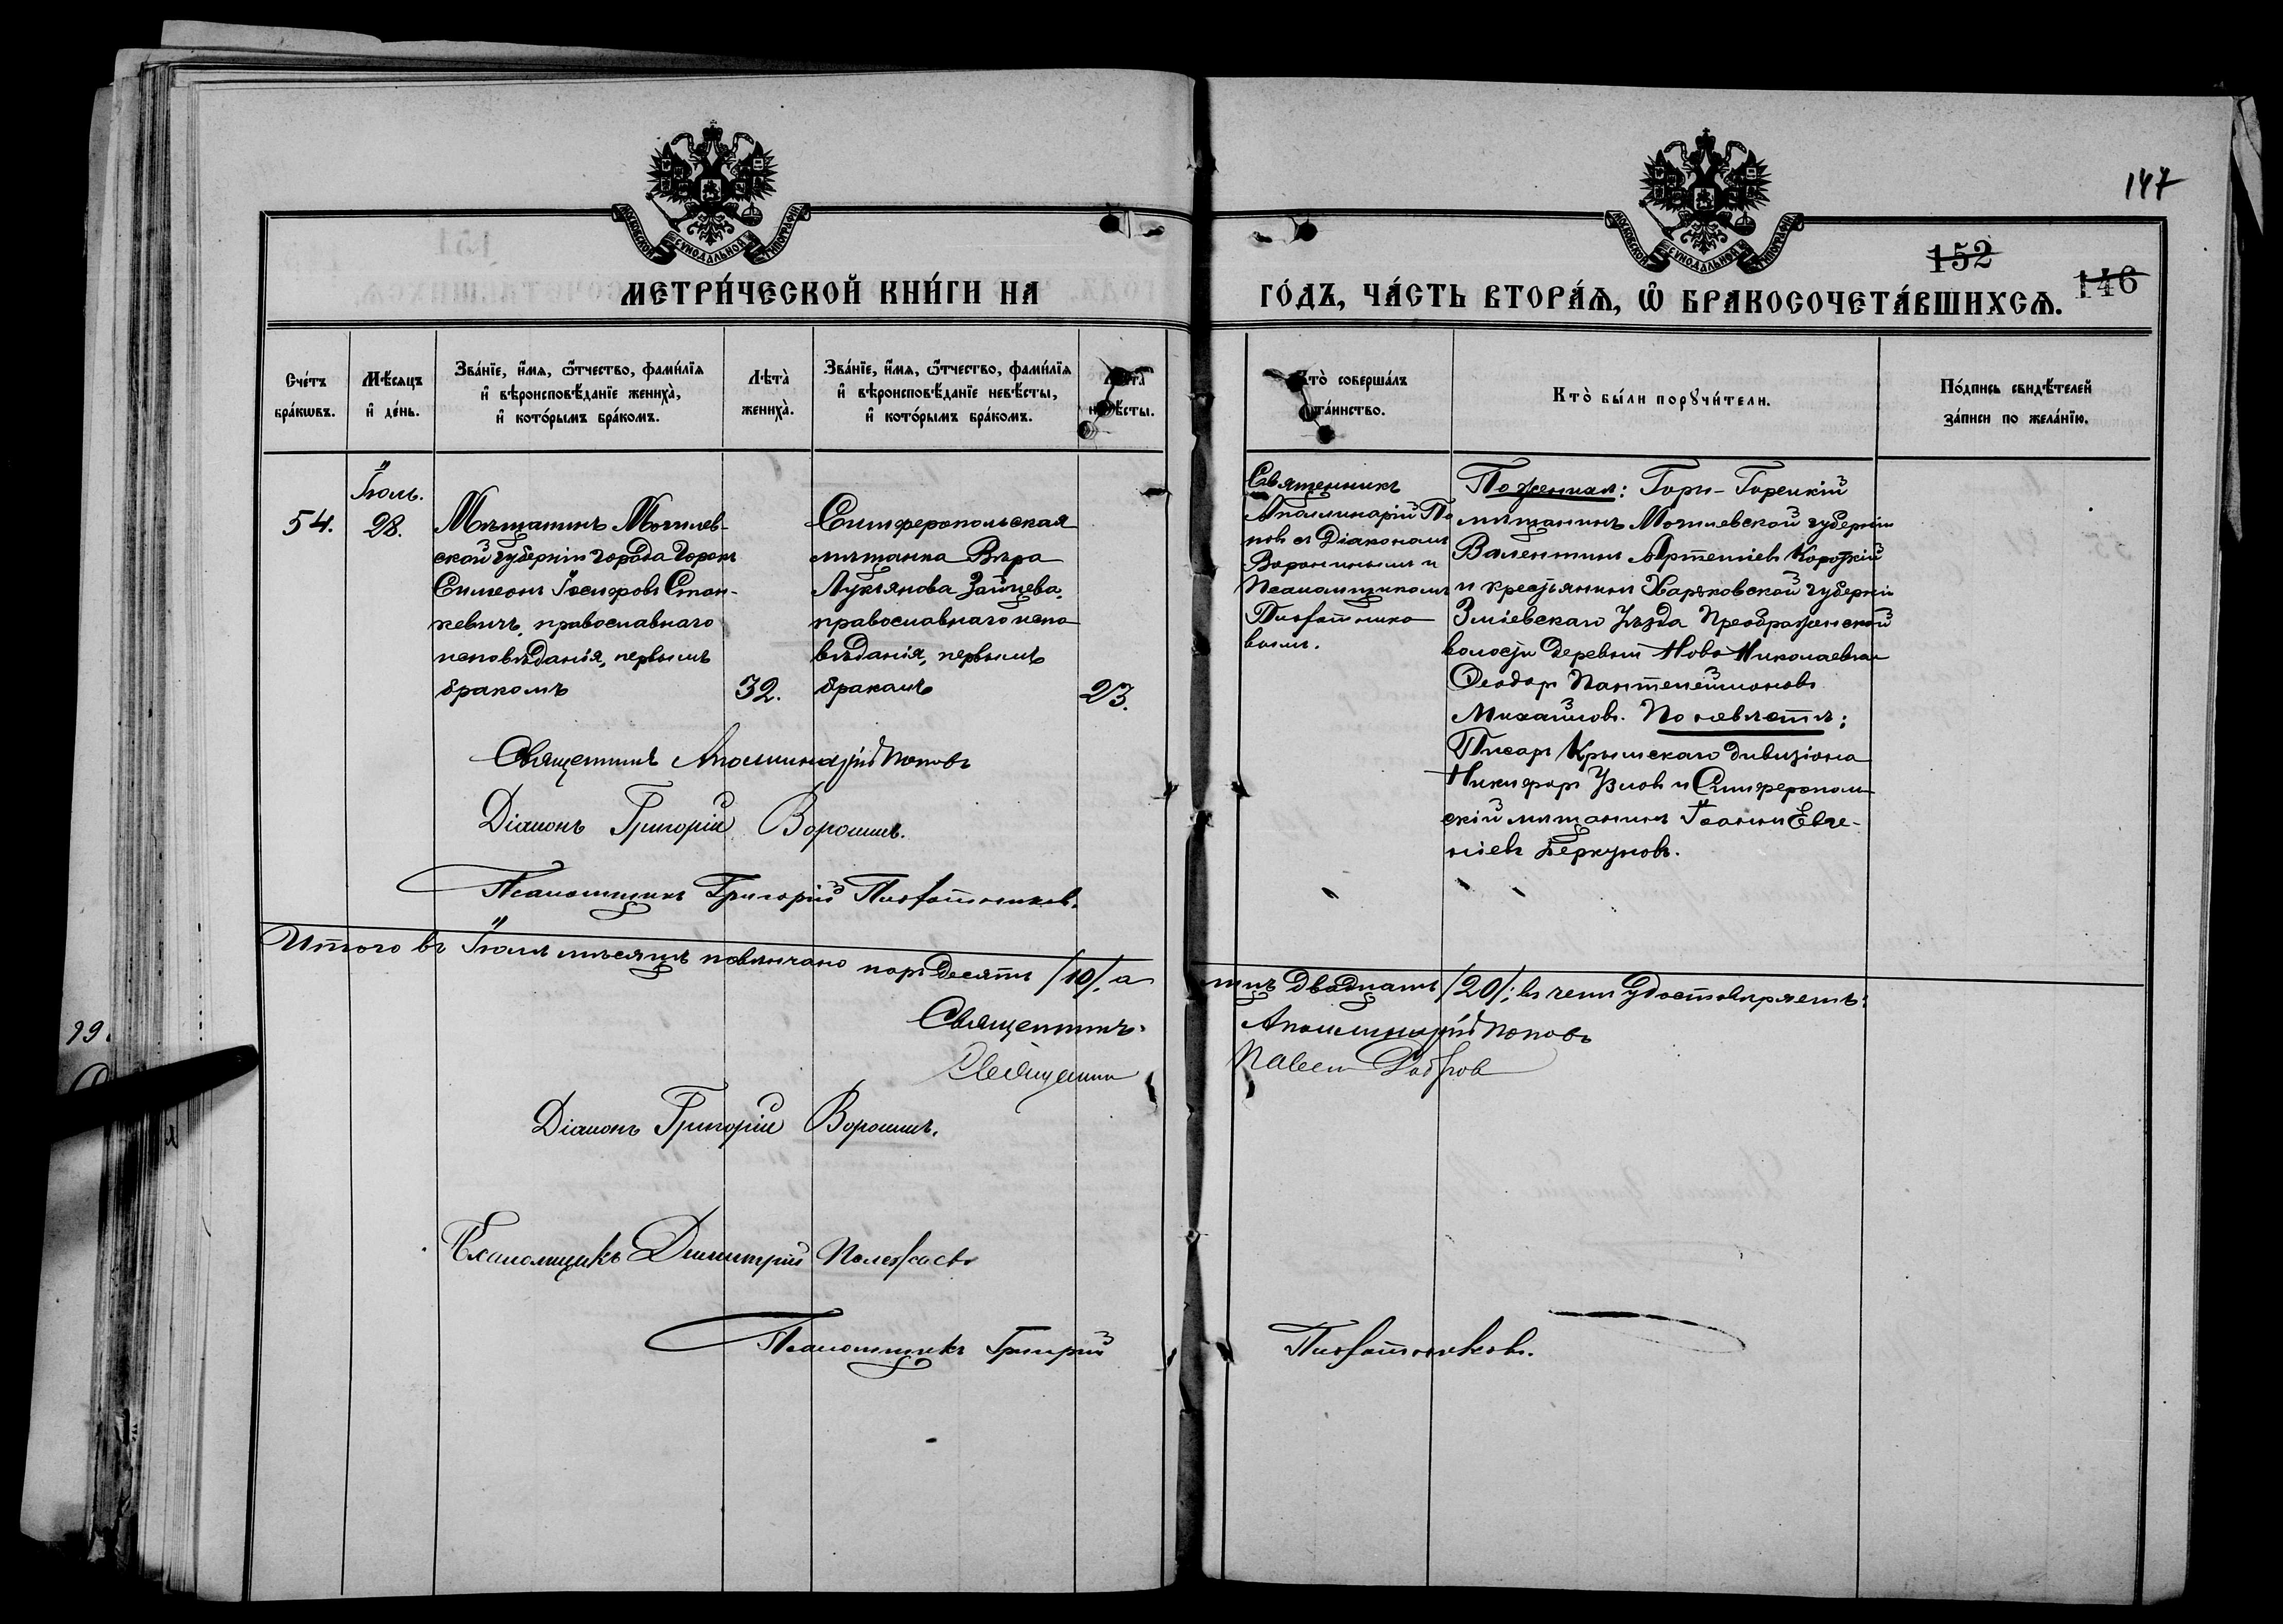 147
152
146
МОСКОВСКОЙ СѴНОДАЛЬНОЙ ТИПОГРАФІИ
МОСКОВСКОЙ СѴНОДАЛЬНОЙ ТИПОГРАФІИ
МЕТРИ́ЧЕСКОЙ КНИ́ГИ НА
ГО́ДЪ, ЧА́СТЬ ВТОРА́Ѧ, Ѡ҆ БРАКОСОЧЕТА́ВШИХСѦ.
Сче́тъ
бра́кѡвъ.
Мѣ́сяцъ
и҆ де́нь.
Зва́нїе, и҆́мя, ѻ҆́тчество, фами́лїя
и҆ вѣроисповѣ́данїе жениха̀,
и҆ кото́рымъ бра́комъ.
Лѣта̀
жениха̀.
Зва́нїе, и҆́мя, ѻ҆́тчество, фами́лїя
и҆ вѣроисповѣ́данїе невѣ́сты,
и҆ кото́рымъ бра́комъ.
Лѣта̀
невѣ́сты.
Кто̀ соверша́лъ
таи́нство.
Кто̀ бы́ли порꙋчи́тели.
По́дпись свидѣ́телей
за́писи по жела́нїю.
54.
Іюль.
28.
Мѣщанинъ Могилев-
ской губерніи города Горокъ
Симеонъ Іосифовъ Стан-
кевичъ, православнаго
исповѣданія, первымъ
бракомъ
32.
Симферопольская
мѣщанка Вѣра
Лукьянова Зайцева,
православнаго испо
вѣданія, первымъ
бракомъ
23.
Священникъ
Аполлинарій По
повъ съ Діакономъ
Ворониным и
Псаломщикомъ
Пис
вымъ.
По женихѣ: Горы-Горецкій
мѣщанинъ Могилевской губерніи
Валентинъ Артеміевъ Короткій
и крестьянинъ Харьковской губерніи
Зміевскаго Уѣзда Преображенской
волости деревни Ново Николаевки
Ѳеодоръ Пантелеймоновъ
Михайловъ. По невѣстѣ:
Писарь Крымскаго дивизіона
Никифоръ Узловъ и Симферополь
скій мѣщанинъ Іоаннъ Евге-
ніевъ Беркуновъ.
Священникъ Аполлинарій Поповъ
Діаконъ Григорій Воронинъ.
Псаломщикъ Григорій
Итого въ Іюлѣ мѣсяцѣ повѣнчано паръ десять /10/, а
лицъ двадцать /20/; въ чемъ удостовѣряемъ:
Священникъ
Аполлинарій Поповъ
Священникъ
Павелъ
Діаконъ Григорій Воронинъ.
Псаломщикъ Димитрій
Псаломщикъ Григорій